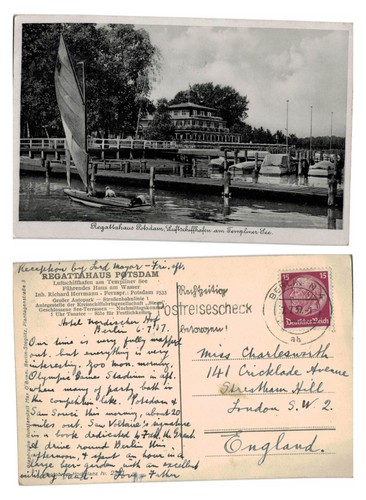 Regattahaus Potsdam, Luftschiffhafen am Templiner See.
Reception by Lord Mayor - Fri. aft.
REGATTAHAUS POTSDAM
Luftschiffhafen am Templiner See
Führendes Haus am Wasser
Inh. Richard Herrmann - Fernspr.: Potsdam
Großer Autopark - Straßenbahnlinie 1
Anlegestelle der Kreisschiffahrtsgesellschaft
Geschlossene See-Terrassen - Nachmittagskonzert
5 Uhr Tanztee - Säle für Festlichkeiten
Hotel Nordischer Hof
Berlin.
Our time is very fully mapped
out, but everything is very
interesting, Yoo man
Olympic Games Stadium in aft.
where many of party bath in
the competition lake. Potsdam &
San Souci this morning, about 20
miles out. Saw Voltaire's signature
in a book dedicated to Fredk. the Great
& drive round Berlin this
afternoon, & spent an hour in a
large beer-garden with an excellent
military band.
Father
Rechtzeitig
Postreisescheck
besorgen!
BERLIN
15 15
Deutsches Reich
ah
Miss Charlesworth
141 Cricklade Avenue
Streatham Hill
London S.W. 2.
England.